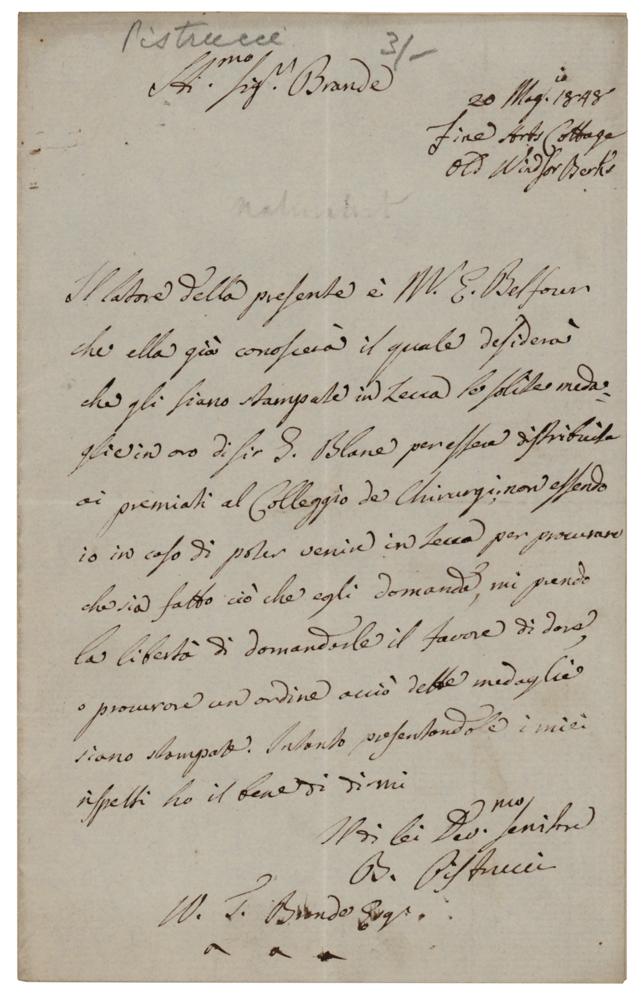 Pistrucci 3/-
Ill.mo Sig.r Brande
20 Mag.io 1848
Fine Arts Cottage
Old Windsor Berks
Il latore della presente è M. E. Belfour
che ella già conoscerà il quale desidera
che gli siano stampate in Zecca le solite meda=
glie in oro di Sir G. Blane per essere distribuite
ai premiati al Colleggio de Chirurgi; non essendo
io in caso di poter venire in Zecca per procurare
che sia fatto ciò che egli domanda, mi prendo
la libertà di domandarle il favore di dare,
o procurare un ordine acciò dette medaglie
siano stampate. Intanto presentandole i miei
rispetti ho il bene di dirmi
di lei Dev.mo Servitore
B. Pistrucci
W. T. Brande Esqr.